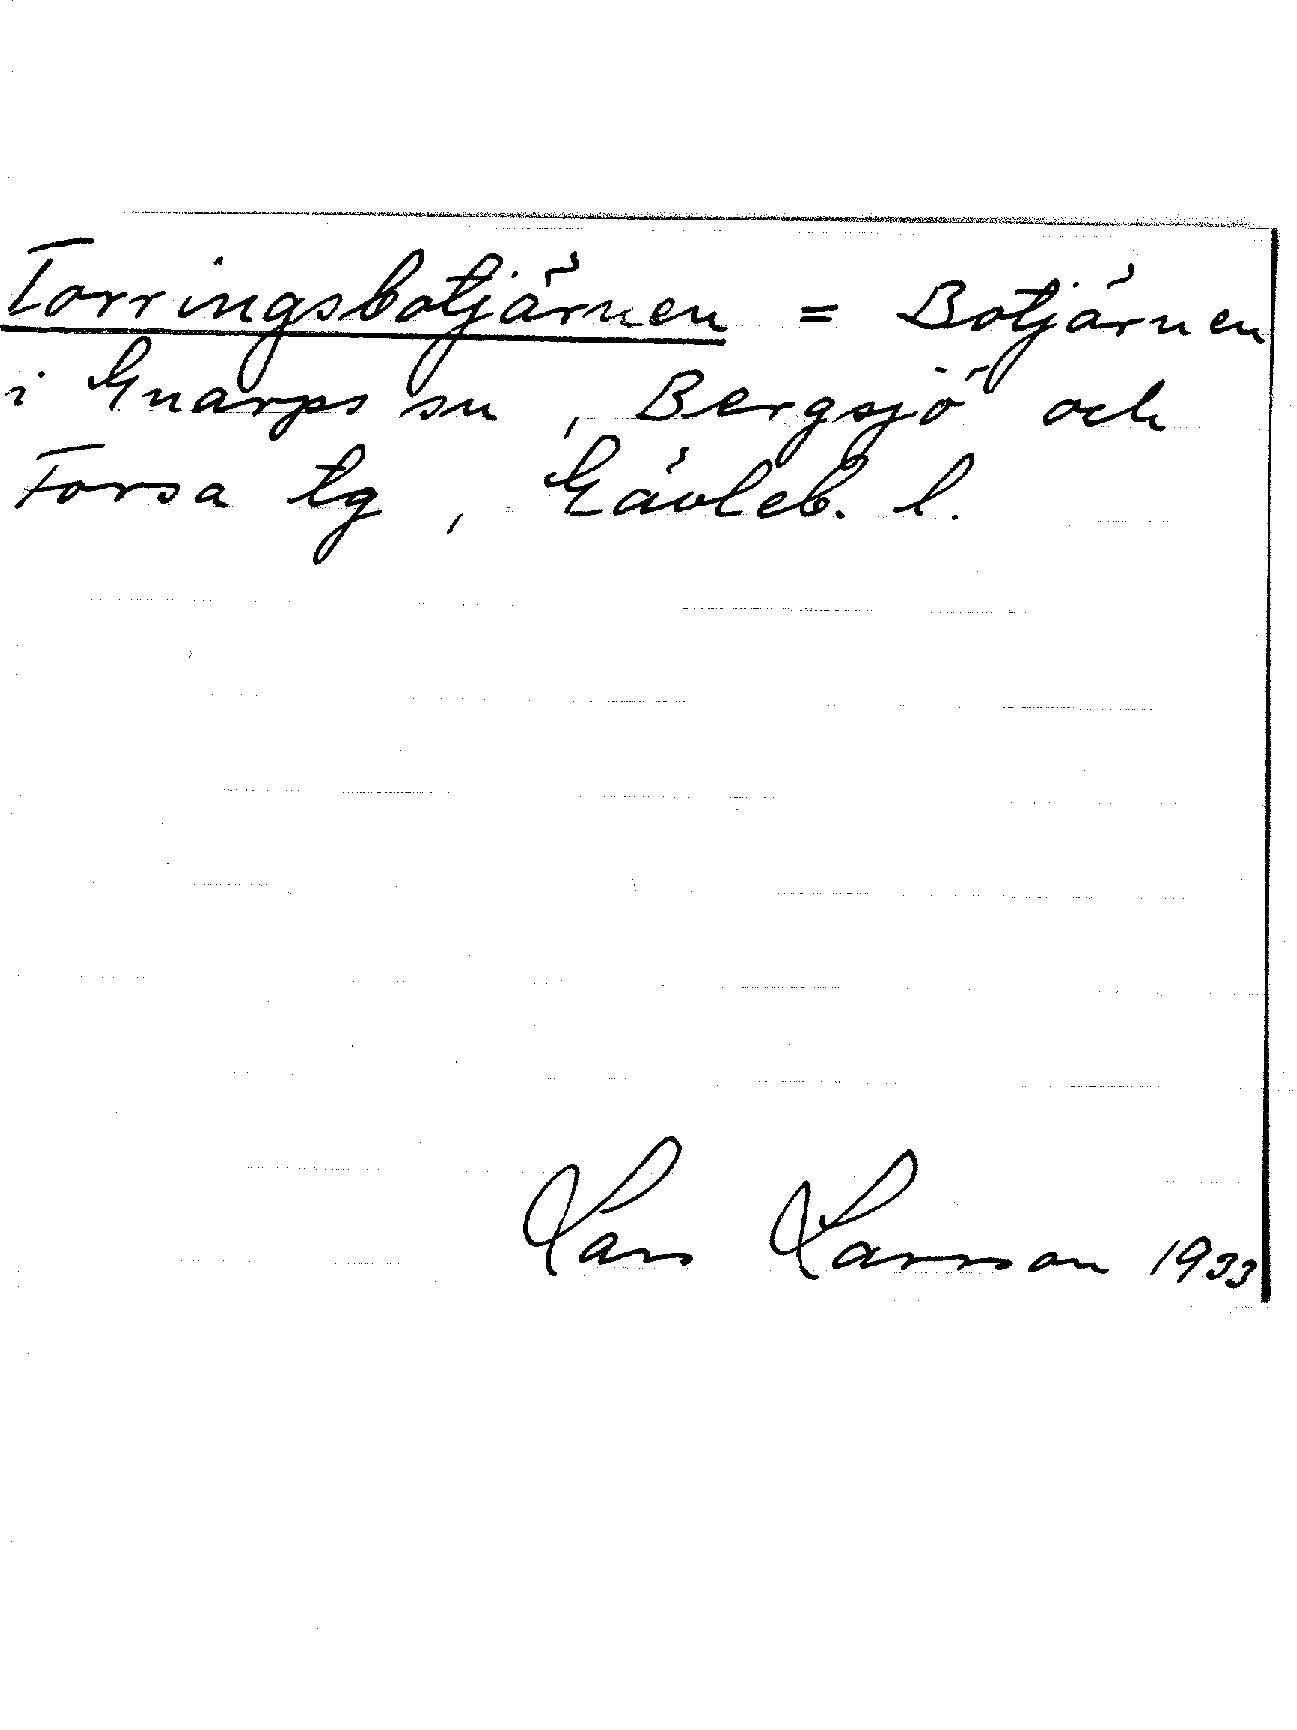 Torringsbotjärnen = Botjärnen
i Gnarps sn, Bergsjö och
Forsa tg, Gävleb. l.
Lars Larsson 1933